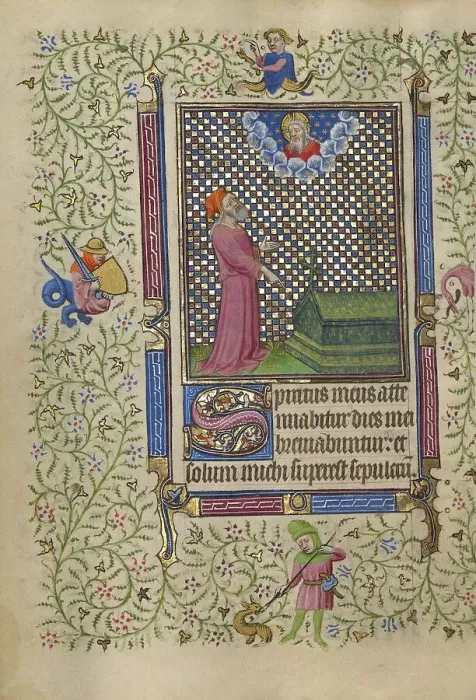 Spiritus meus atte
nuabitur dies mei
breviabuntur: et
solum michi superest sepulcru.